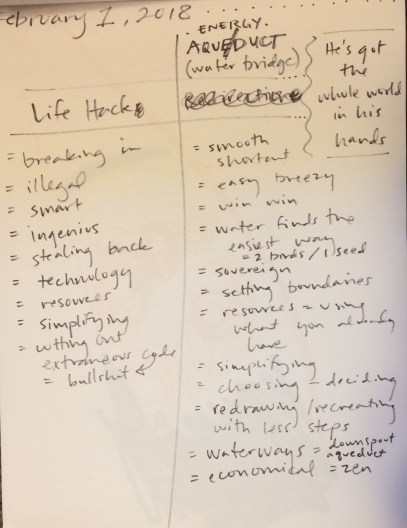 February 1, 2018
Life Hacks
= breaking in
= illegal
= smart
= ingenius
= stealing back
= technology
= resources
= simplifying
= cutting out
extraneous code
= bullshit
. ENERGY.
AQUEDUCT
(water bridge)
= smooth
shortcut
= easy breezy
= win win
= water finds the
easiest way
= 2 birds / 1 seed
= sovereign
= setting boundaries
= resources = using
what you already
have
= simplifying
= choosing – deciding
= redrawing / recreating
with less steps
= waterways = downspout
aqueduct
= economical = zen
He's got
the
whole world
in his
hands